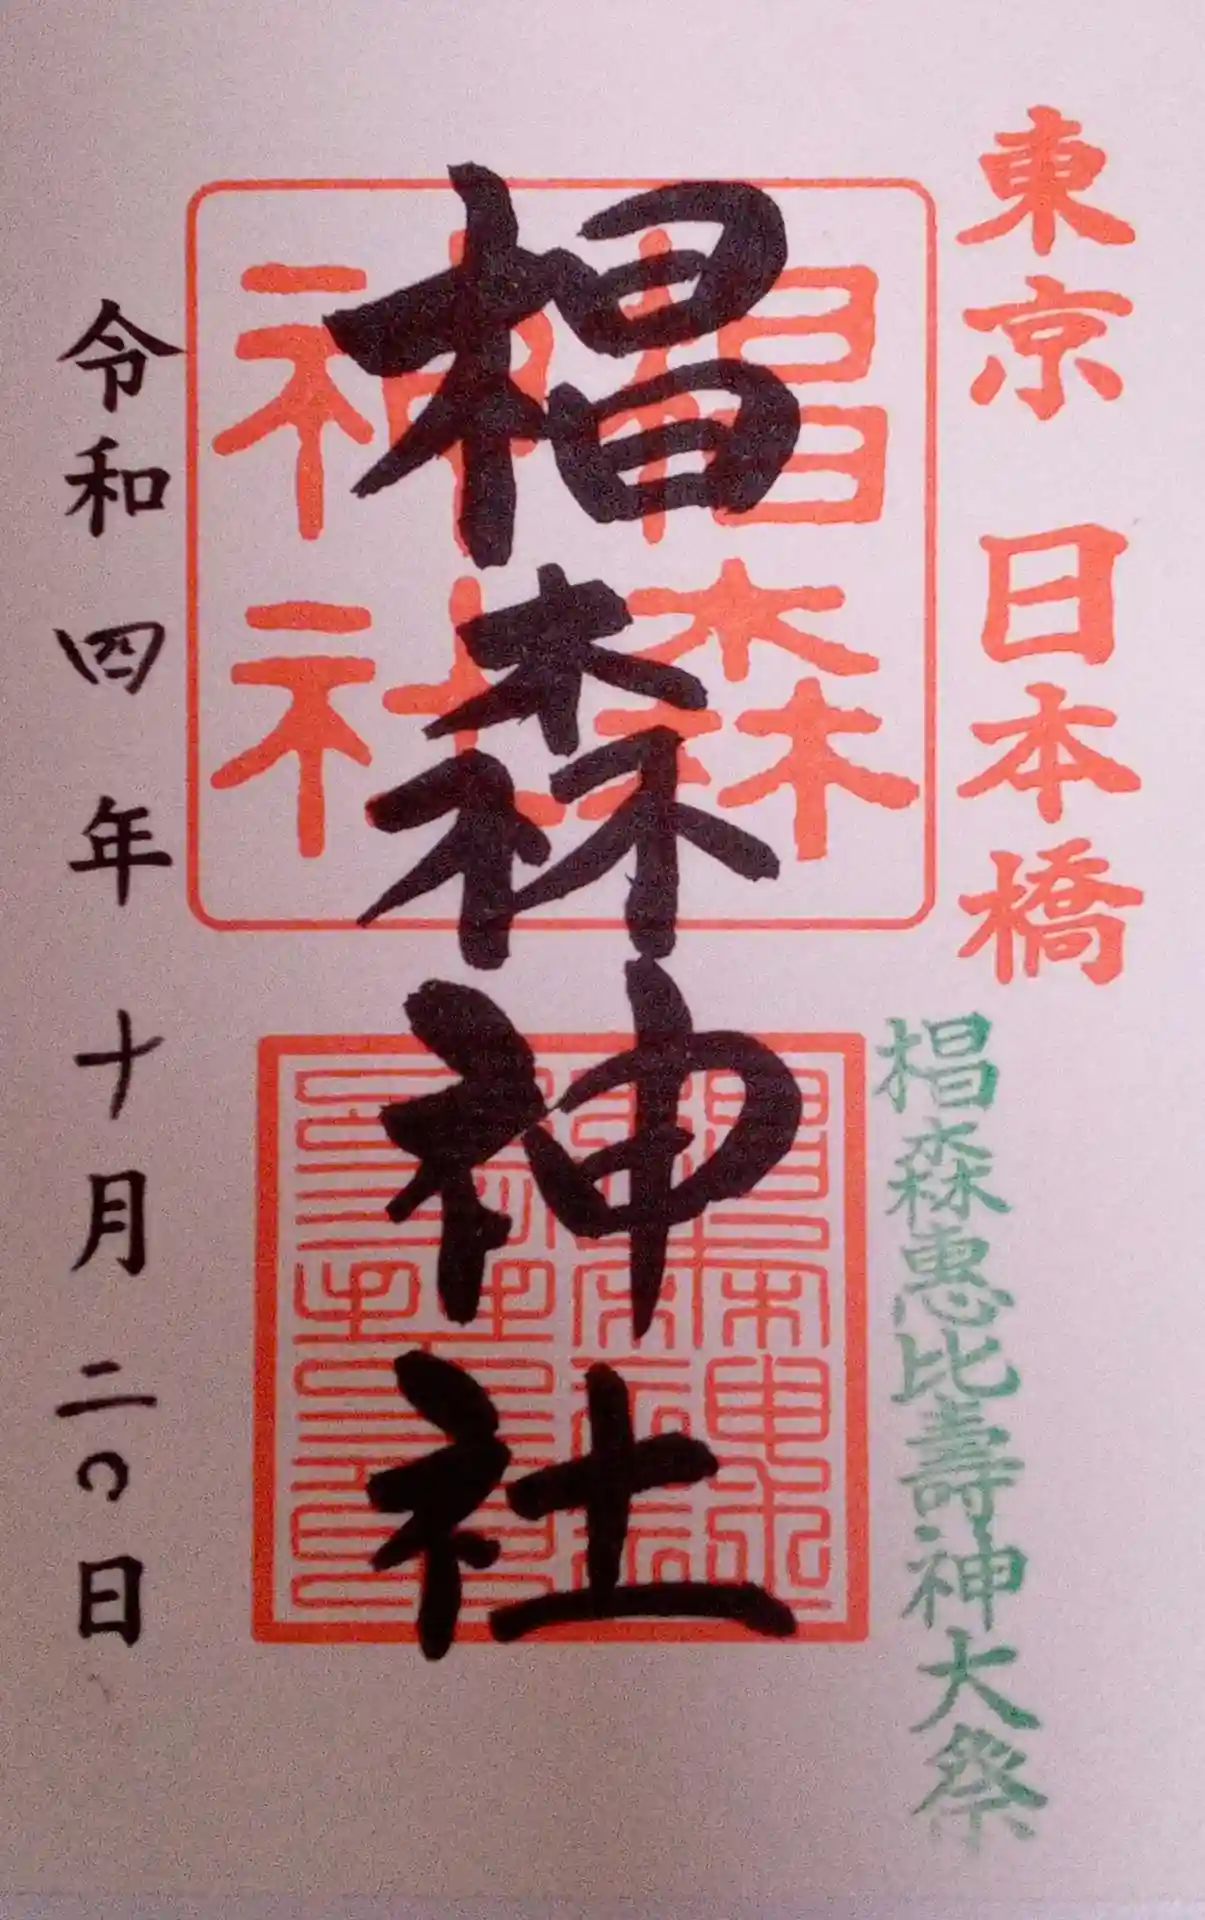 東京 日本橋
椙森惠比壽神大祭
椙森
神社
椙森神社
令和四年十月二〇日